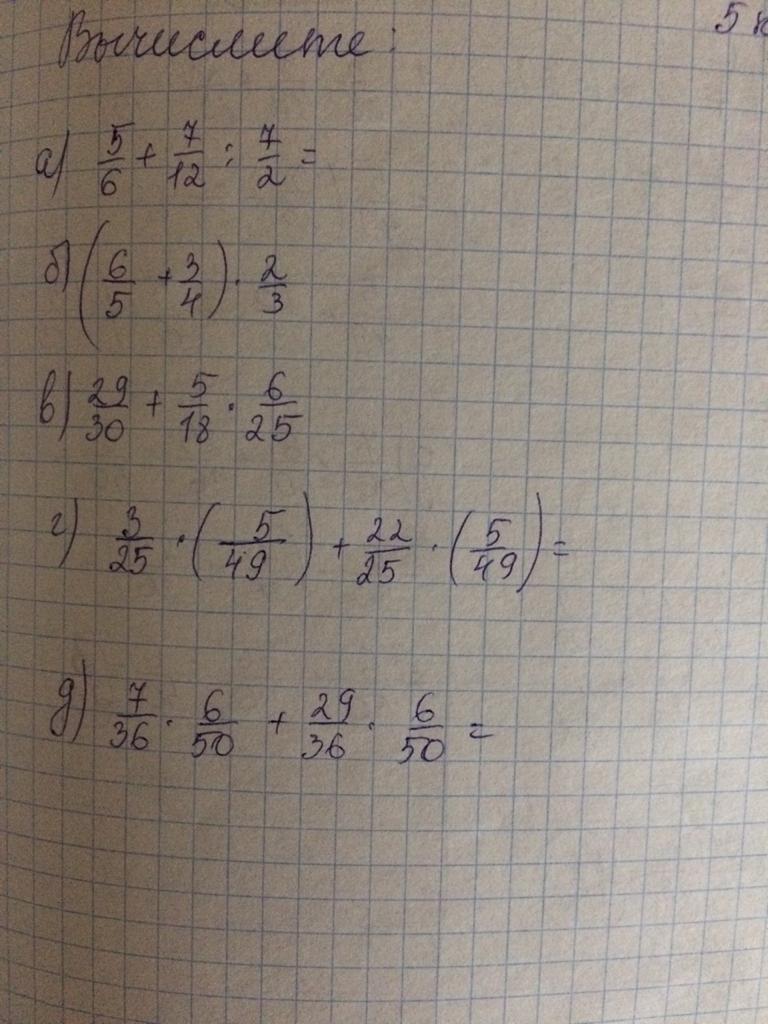 5 к
Вычислите:
а) 5/6 + 7/12 : 7/2 =
б) (6/5 + 3/4) · 2/3
в) 29/30 + 5/18 · 6/25
г) 3/25 · (5/49) + 22/25 · (5/49) =
д) 7/36 · 6/50 + 29/36 · 6/50 =